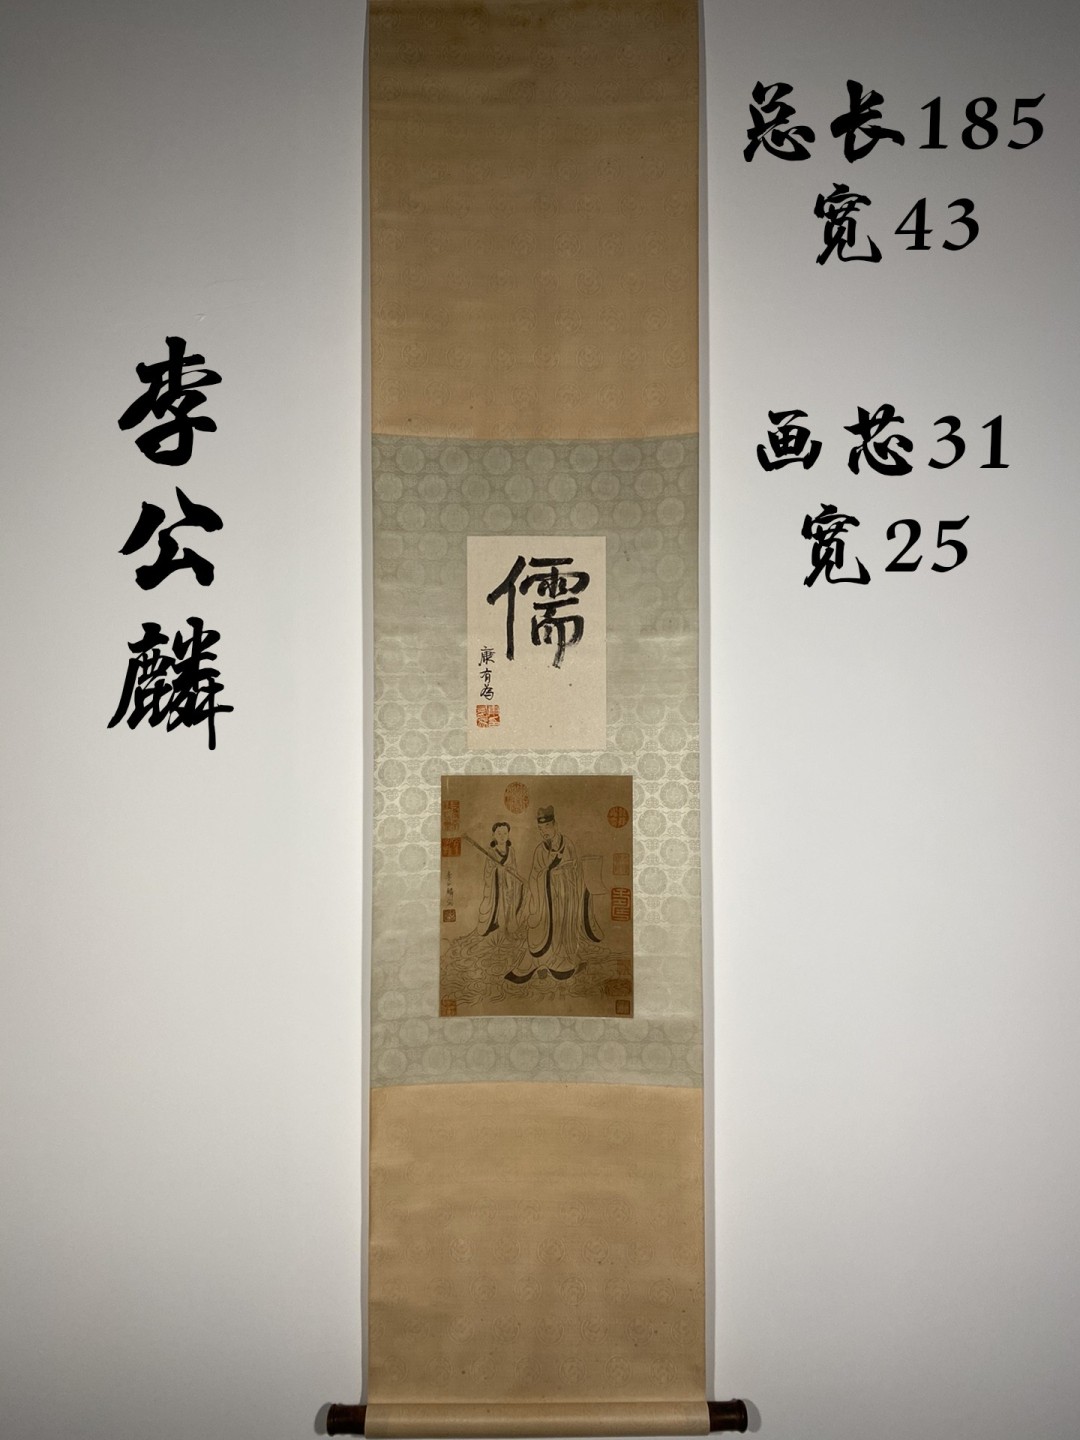 总长185
宽43
李公麟
画芯31
宽25
儒
康有為